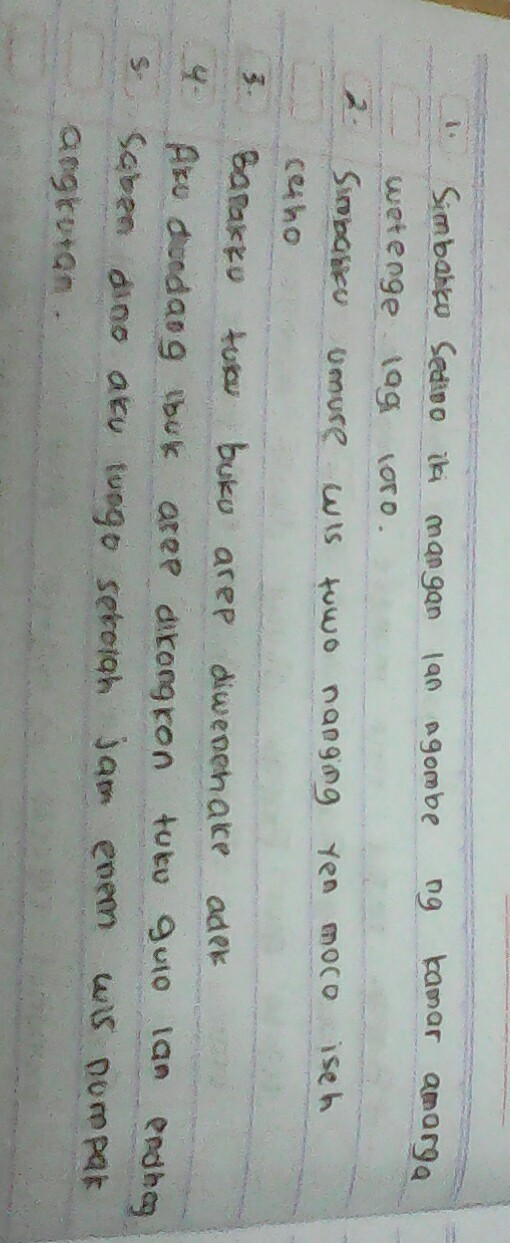 1. Simbahku sedino iki mangan lan ngombe ng kamar amarga
wetenge lagi loro.
2. Simbahku umure wis tuwo nanging yen moco iseh
cetho
3. Bapakku tuku buku arep diwenehake adek
4. Aku diundang ibuk arep dikongkon tuku gulo lan endhog
5. Saben dino aku lungo sekolah jam enem wis numpak
angkutan.